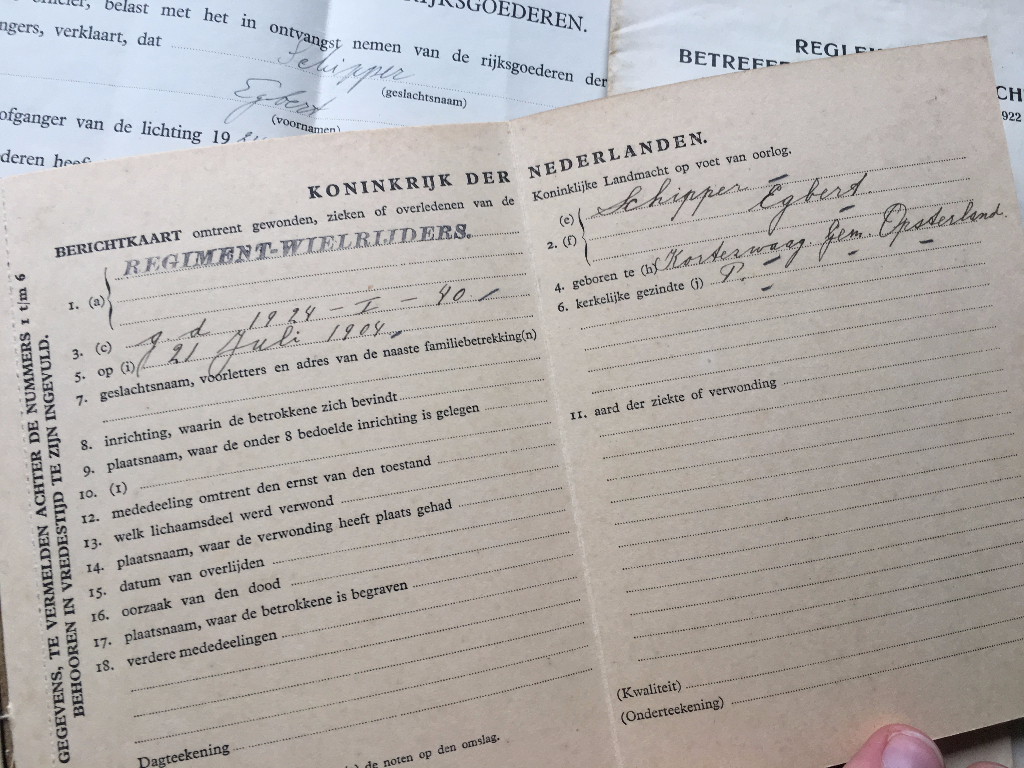 RIJKSGOEDEREN.
officier, belast met het in ontvangst nemen van de rijksgoederen der
ngers, verklaart, dat Schipper
(geslachtsnaam)
Egbert
(voornamen)
ofganger van de lichting 19
deren
BETREFFE
1922
KONINKRIJK DER NEDERLANDEN.
BERICHTKAART omtrent gewonden, zieken of overledenen van de Koninklijke Landmacht op voet van oorlog.
1. (a) REGIMENT-WIELRIJDERS.
(e) Schipper
2. (f) Egbert.
3. (c) gd 1924-I-40.
4. geboren te (h) Korterwaag. gem. Opsterland.
5. op (i) 21 Juli 1904.
6. kerkelijke gezindte (j) P.
7. geslachtsnaam, voorletters en adres van de naaste familiebetrekking(n)
8. inrichting, waarin de betrokkene zich bevindt
9. plaatsnaam, waar de onder 8 bedoelde inrichting is gelegen
10. (l)
11. aard der ziekte of verwonding
12. mededeeling omtrent den ernst van den toestand
13. welk lichaamsdeel werd verwond
14. plaatsnaam, waar de verwonding heeft plaats gehad
15. datum van overlijden
16. oorzaak van den dood
17. plaatsnaam, waar de betrokkene is begraven
18. verdere mededeelingen
Dagteekening
(Kwaliteit)
(Onderteekening)
de noten op den omslag.
GEGEVENS, TE VERMELDEN ACHTER DE NUMMERS 1 t/m 6
BEHOOREN IN VREDESTIJD TE ZIJN INGEVULD.